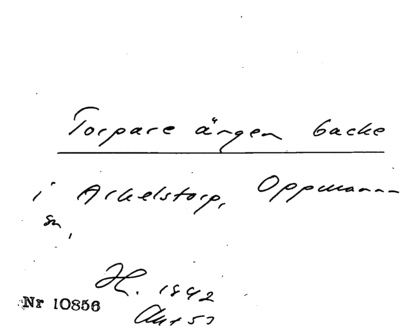 Torpare ängen backe
i Arkelstorp, Oppmanna
sn,
H. 1842
Nr 10856
Akt 53